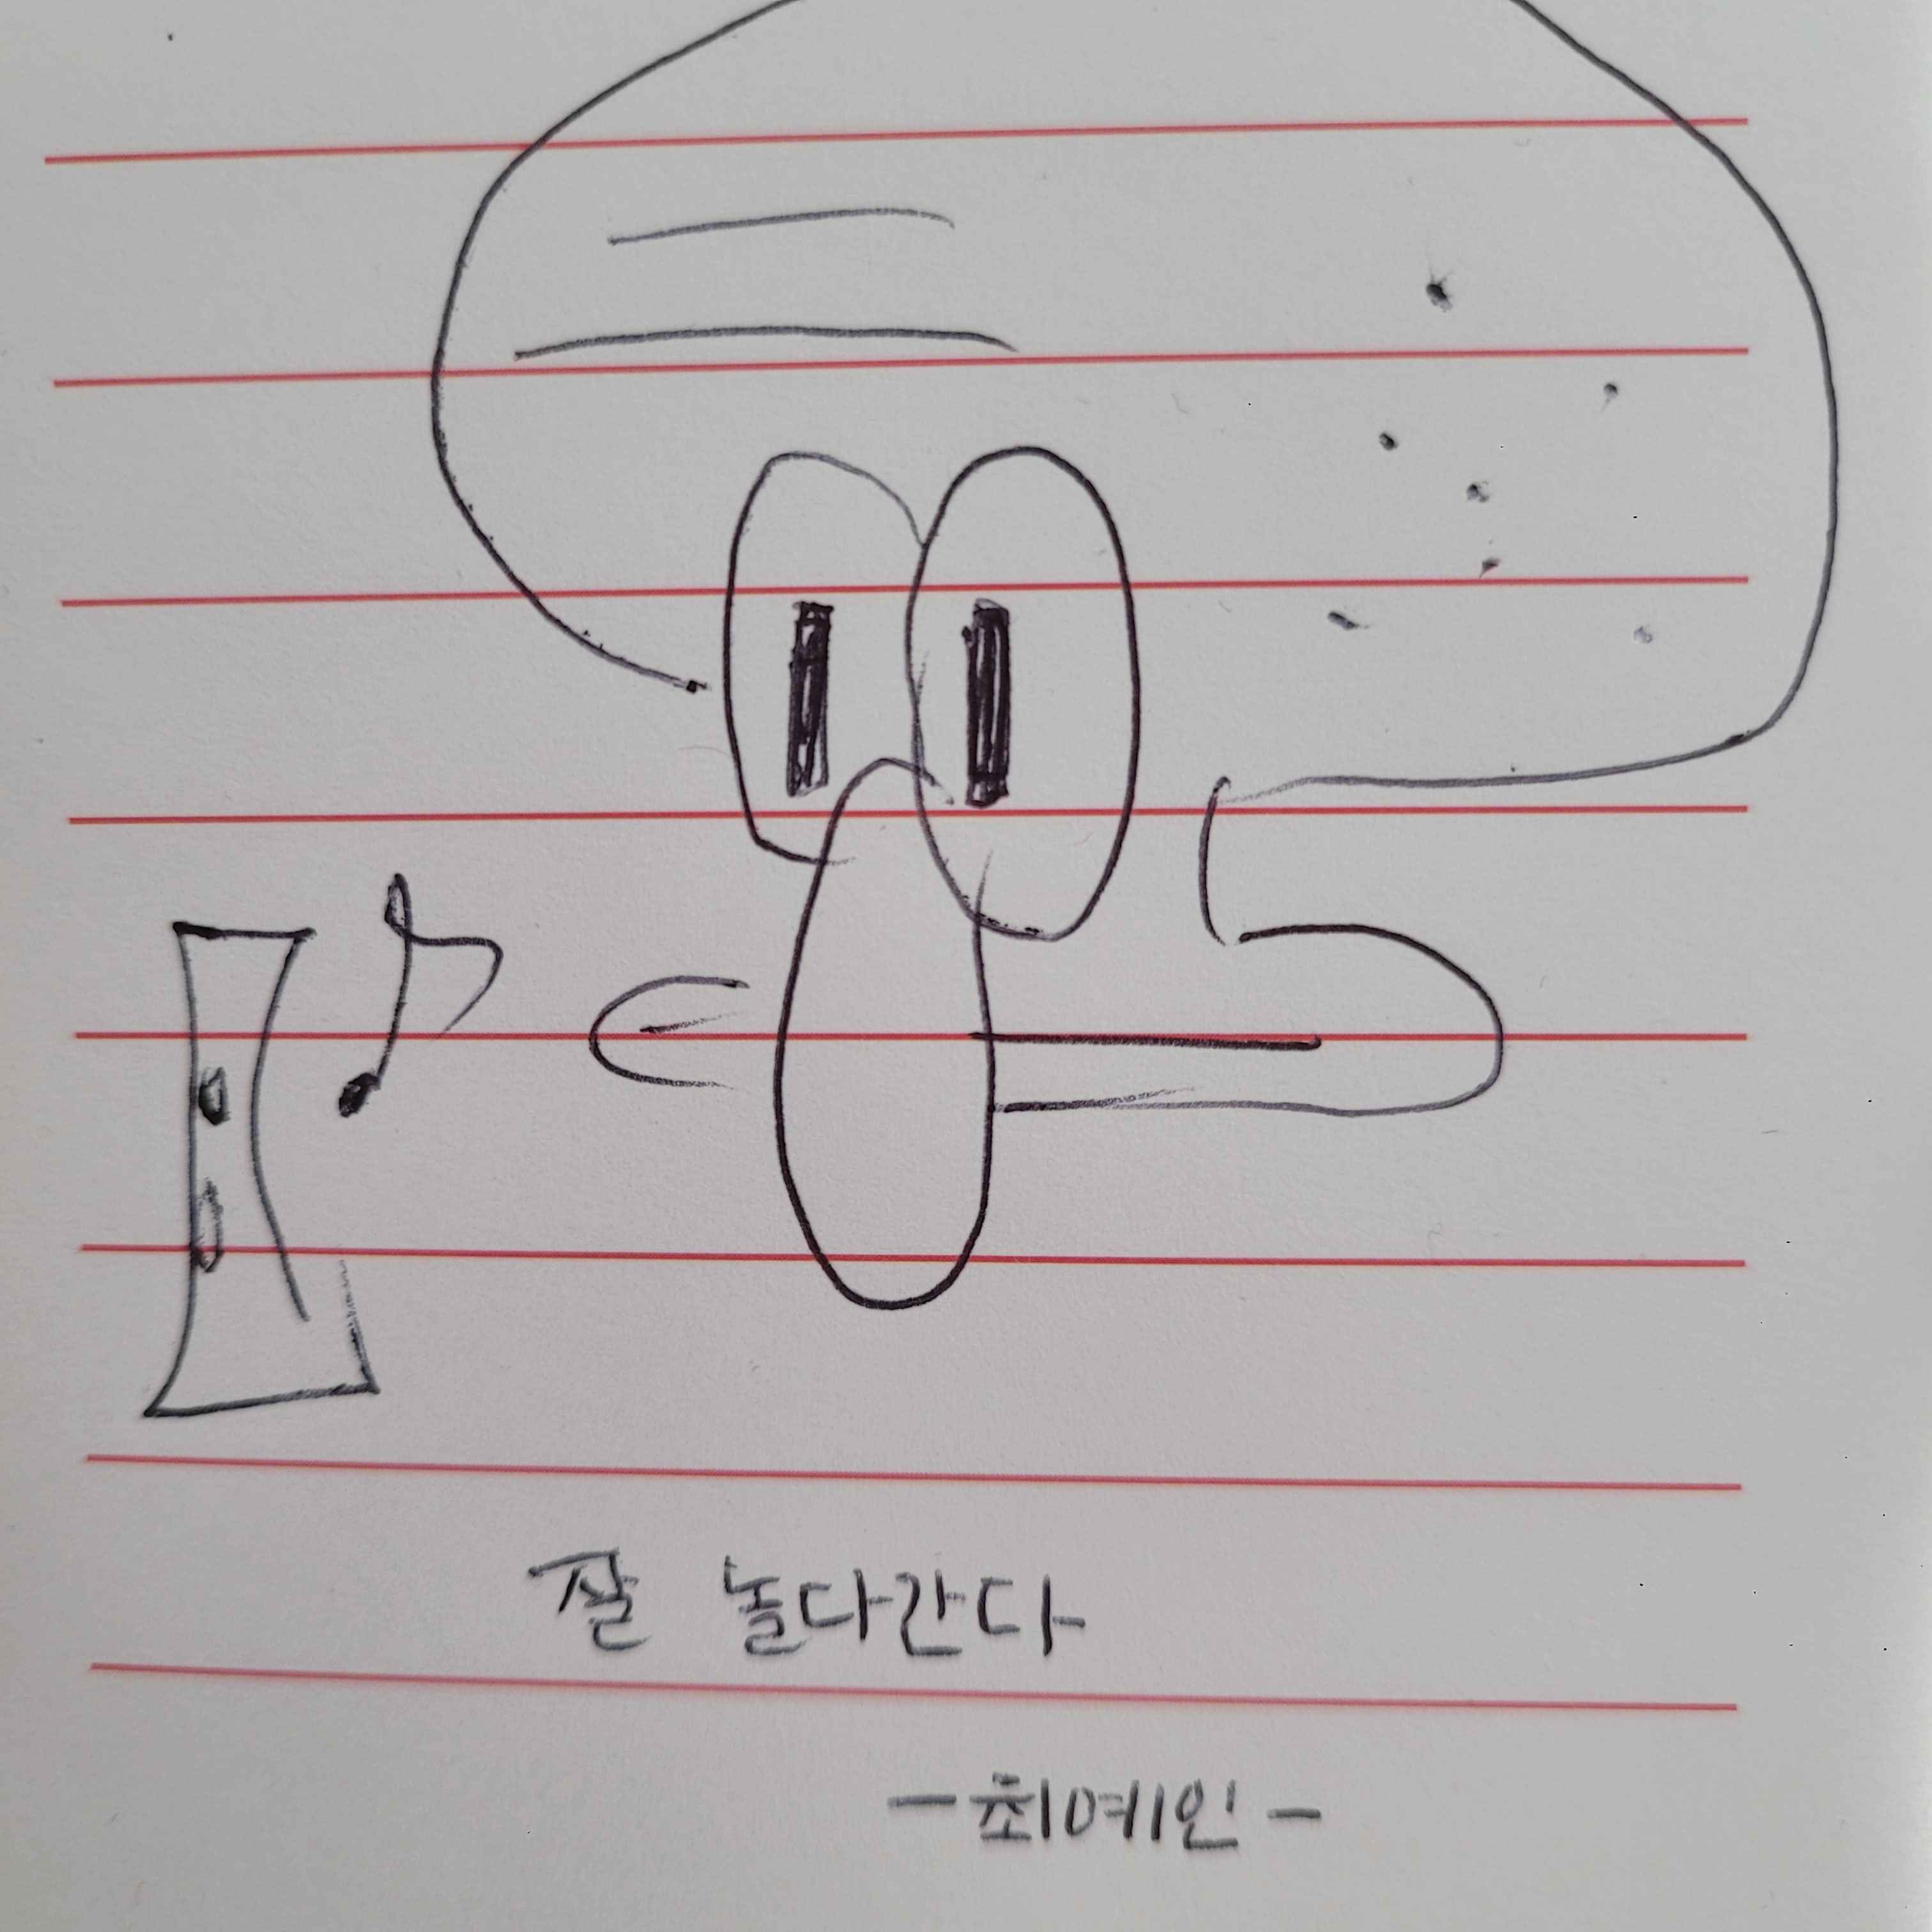 잘 놀다간다
-최예인-